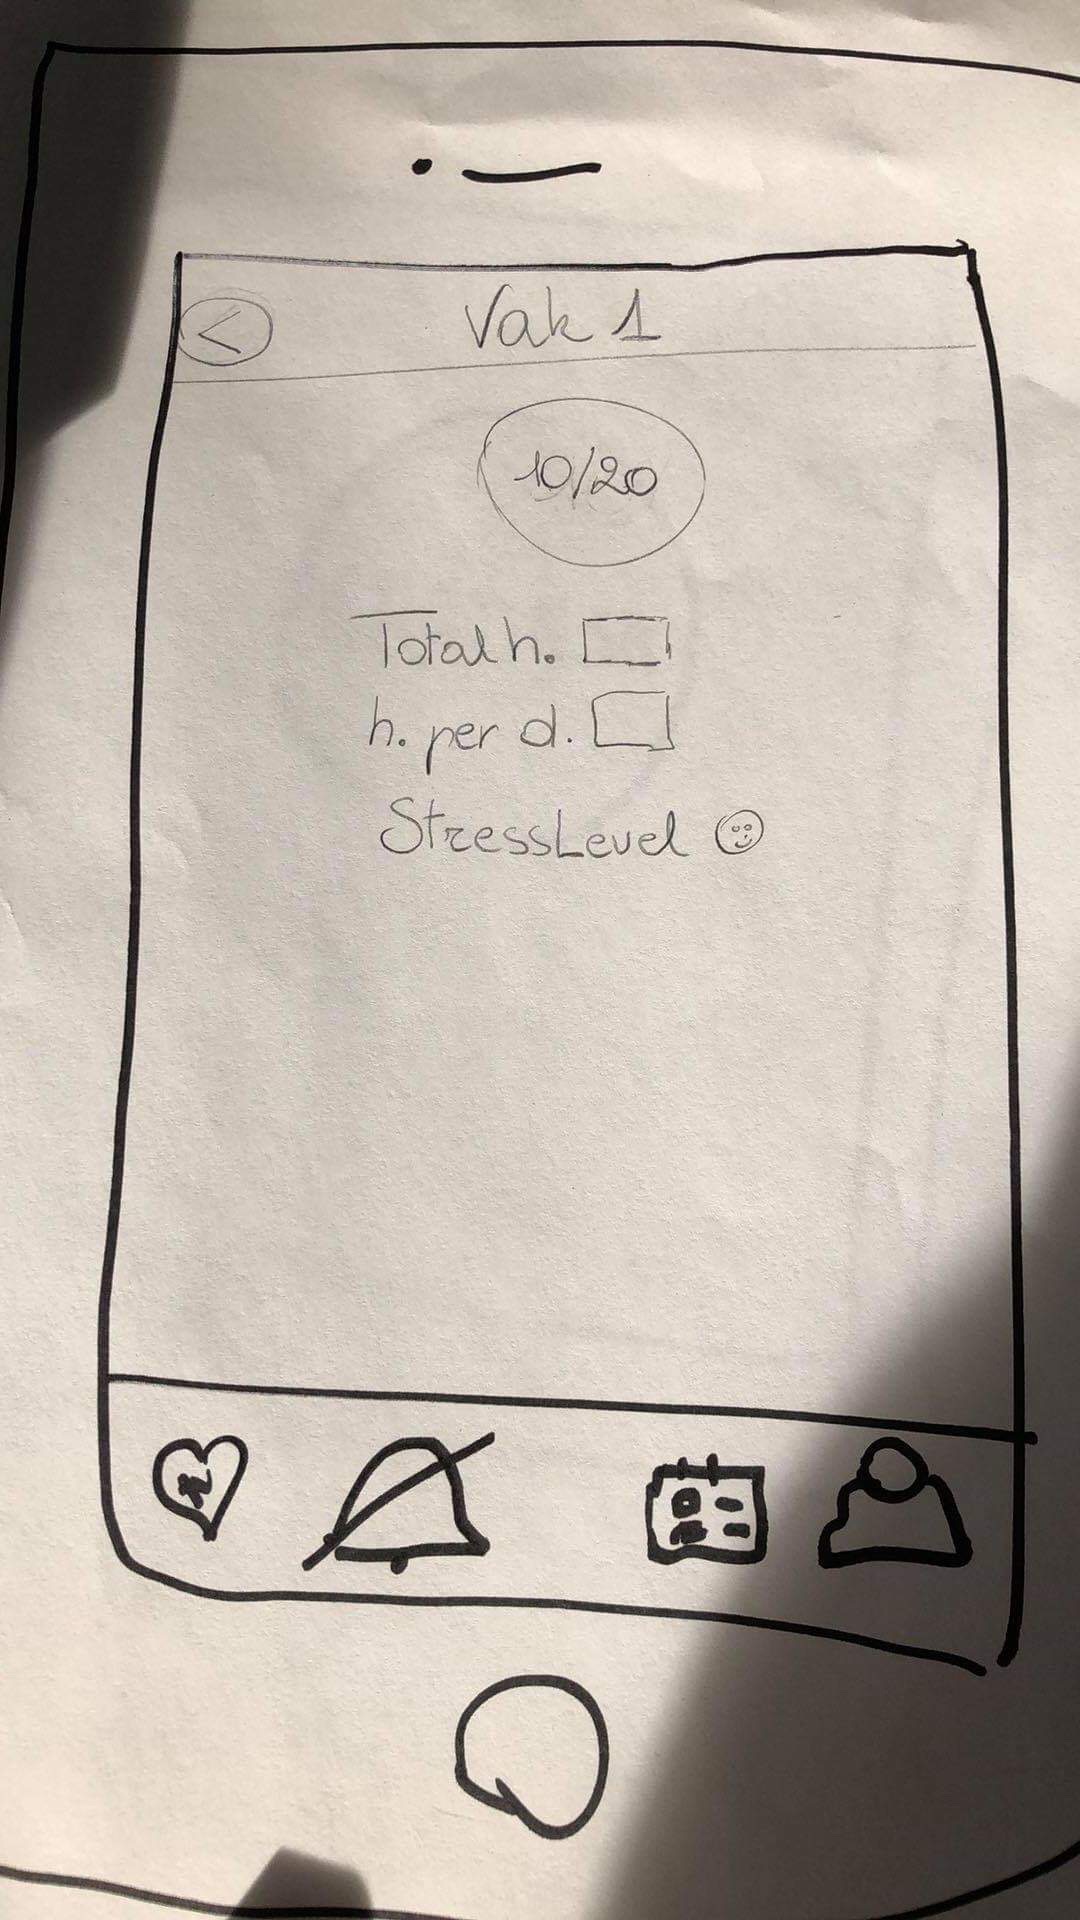 Vak 1
10/20
Total h.
h. per d.
StressLevel